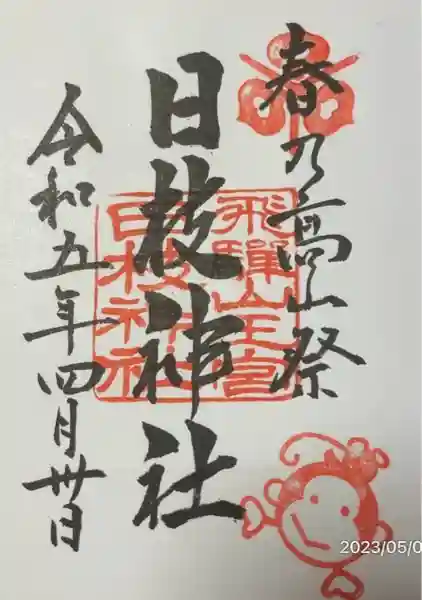 春乃高山祭
日枝神社
令和五年四月卅日
飛騨山王宮
日枝神社
2023/05/0